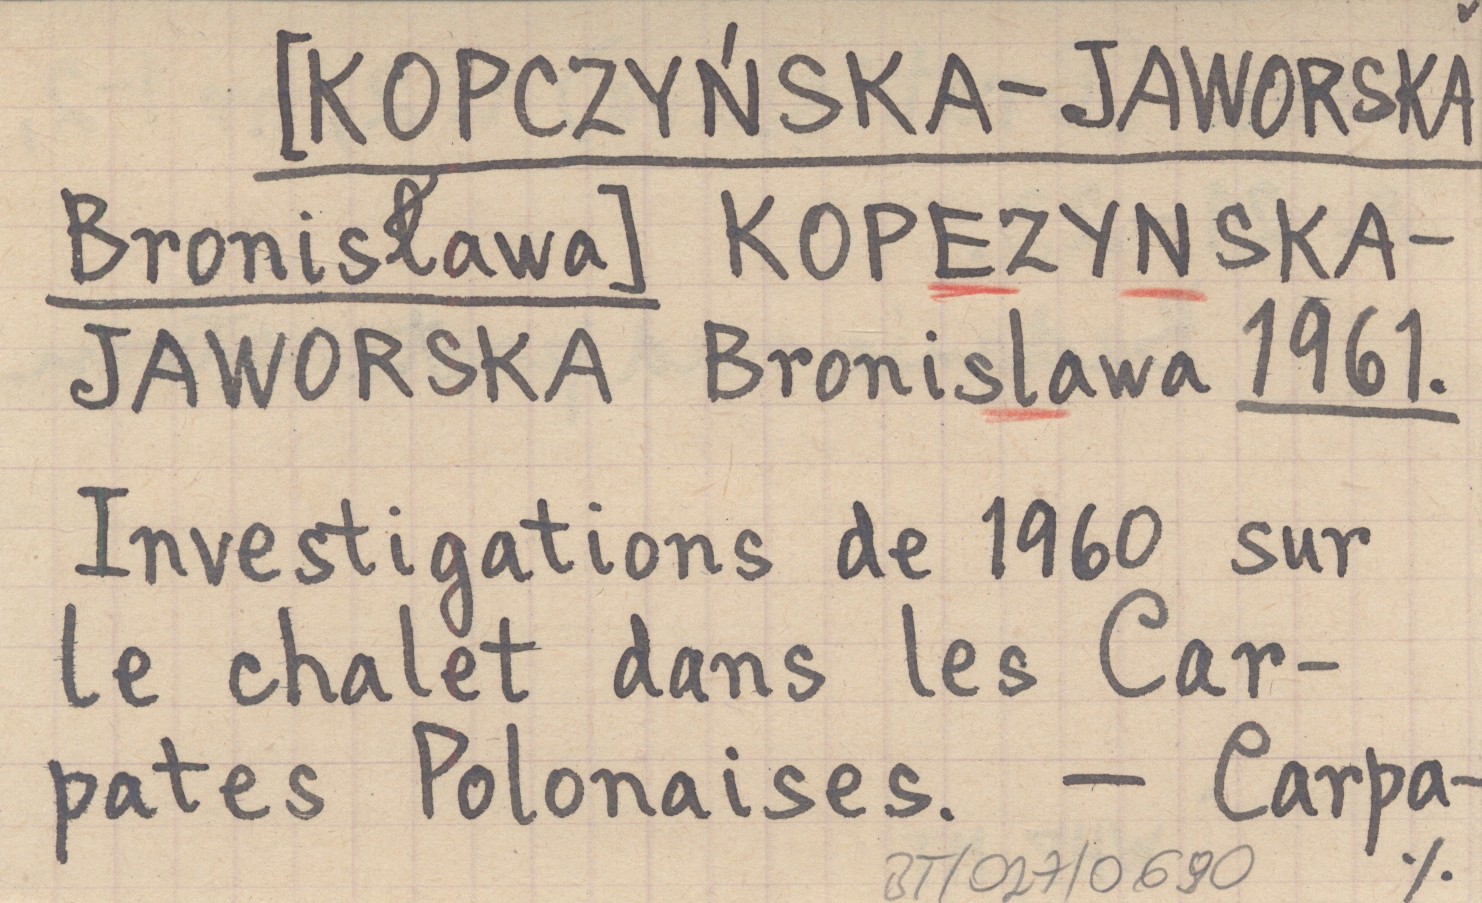 [KOPCZYŃSKA-JAWORSKA
Bronisława] KOPEZYNSKA-
JAWORSKA Bronislawa 1961.
Investigations de 1960 sur
le chalet dans les Car-
pates Polonaises. — Carpa-
BT/027/0690
./.